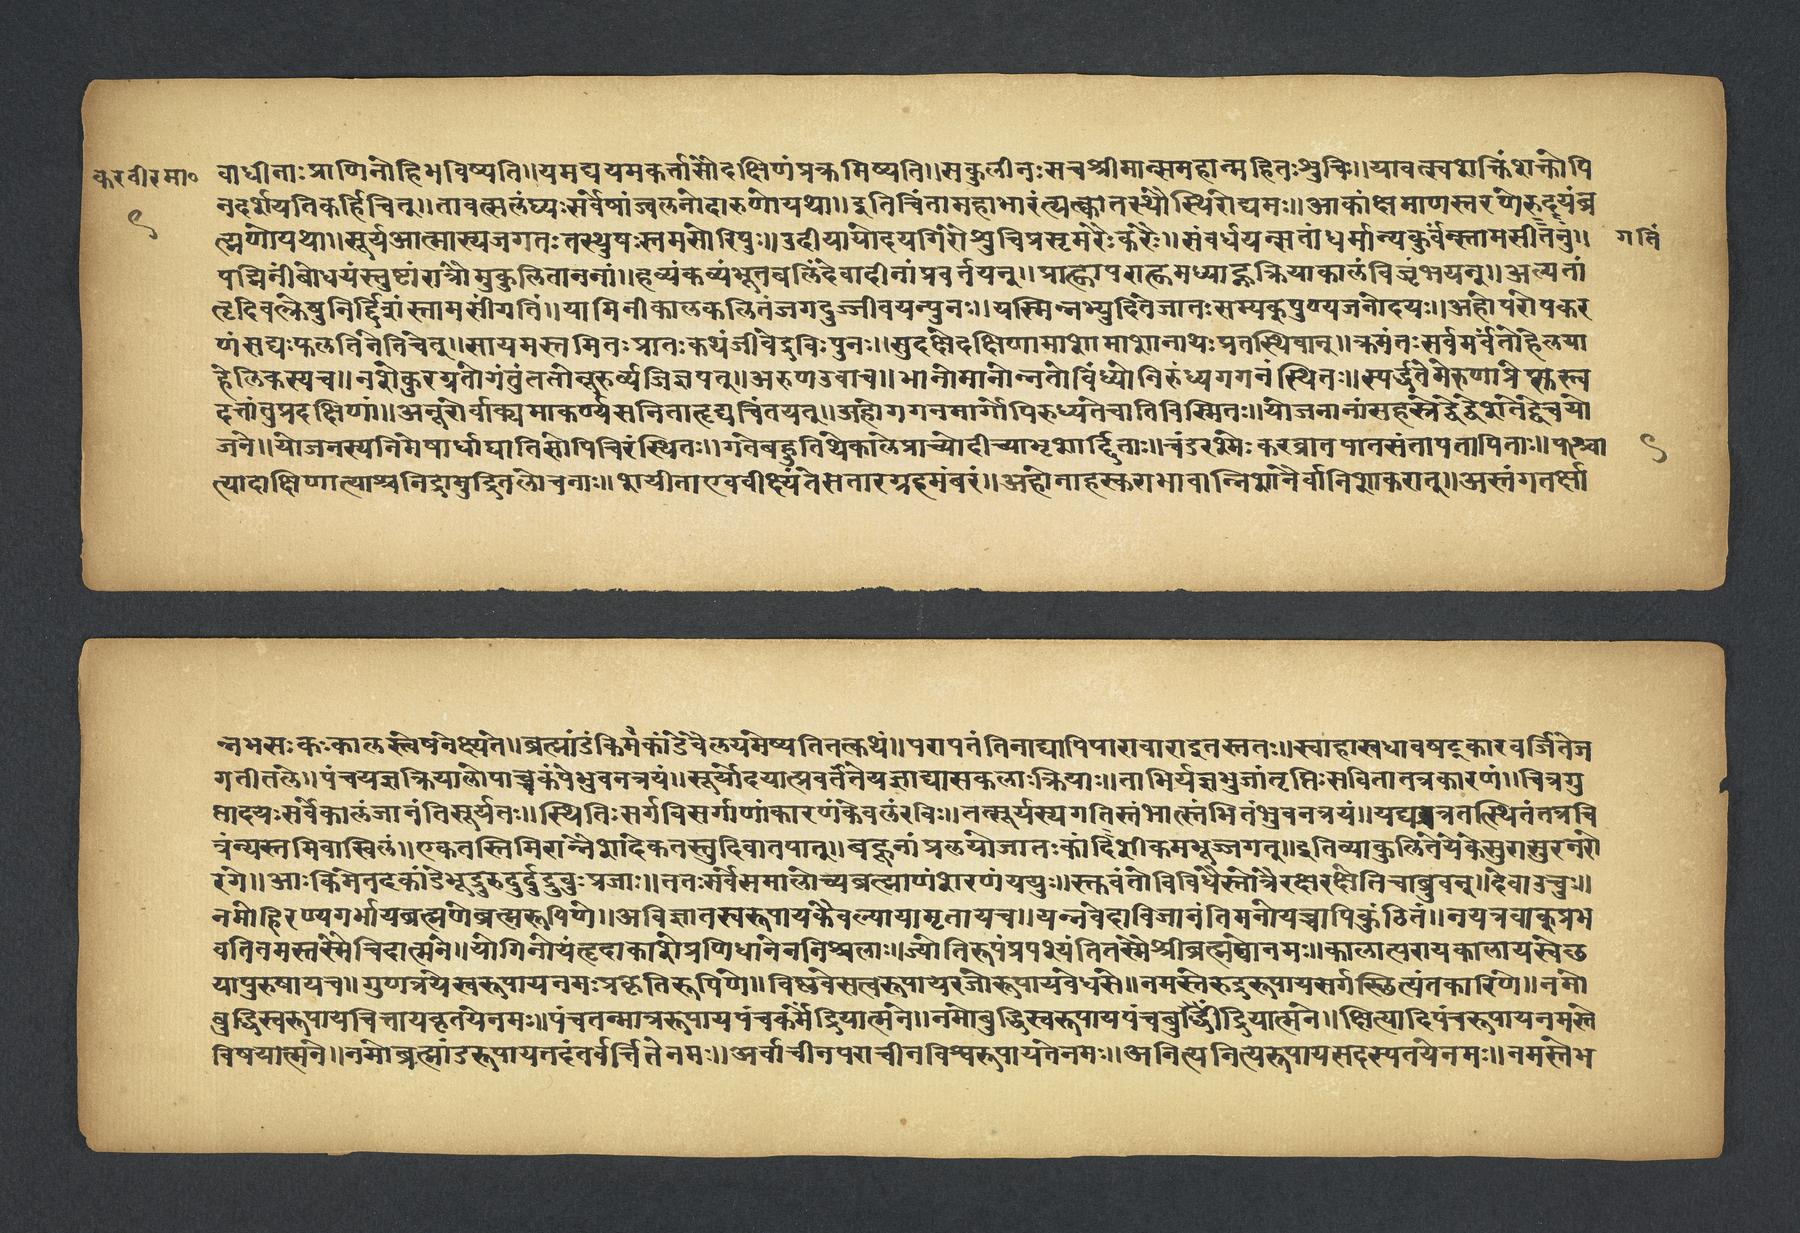 करवीरमा० वाधीनाः प्राणिनोहिभविष्यति॥यमद्ययमकर्त्तासौदक्षिणंप्रक्रमिष्यति॥सकुलीनःसचश्रीमान्समहान्महितःशुचिः॥यावत्स्वशक्तिंशक्तोपि
नदर्शयतिकर्हिचित्॥तावत्सलंघ्यःसर्वेषांज्वलनोदारुणोयथा॥इतिचिंतामहाभारंत्यत्क्वातस्थौस्थिरोद्यमः॥आकांक्षमाणस्तरणेरुदयंब्र
ह्मणोयथा॥सूर्यआत्मास्यजगतःतस्थुषःस्तमसोरिपुः॥उदीयायोदयगिरौशुचिप्रसृमरैःकरैः॥संवर्धयन्सतांधर्मान्यकुर्वन्स्तामसींतनुं॥ गतिं
पद्मिनींबोधयंस्त्विष्टांरात्रौमुकुलिताननां॥हव्यंकव्यंभूतबलिंदेवादीनांप्रवर्त्तयन्॥प्राह्णापराह्णमध्याह्नक्रियाकालंविजृंभयन्॥असतां
हृदिवक्त्रेषुनिर्द्दिशंस्तामसींगतिं॥यामिनीकालकलितंजगदुज्जीवयन्पुनः॥यस्मिन्नभ्युदितेजातःसम्यक्पुण्यजनोदयः॥अहोपरोपकर
णंसद्यःफलतिनेतिचेत्॥सायमस्तमितःप्रातःकथंजीवेद्रविःपुनः॥सुदक्षोदक्षिणामाशामाशानाथःप्रतस्थिवान्॥क्रमंतःसर्वमर्वंतोहेलया
हेलिकस्यच॥नशेकुरग्रतोगंतुंततोनूरुर्व्यजिज्ञपत्॥अरुणउवाच॥भानोमानोन्नतोविंध्योनिरुंध्यगगनंस्थितः॥स्पर्द्धतेमेरुणाप्रेप्सुस्त्व
दत्तांतुप्रदक्षिणां॥अनूरोर्वाक्यमाकर्ण्यसविताहृद्यचिंतयत्॥अहोगगनमार्गोपिरुध्यतेचातिविस्मितः॥योजनानांसहस्रेद्वेद्वेशतेद्वेचयो
जने॥योजनस्यनिमेषार्धाद्यातिसोपिचिरंस्थितः॥गतेबहुतिथेकालेप्राच्योदीच्याभृशार्द्दिताः॥चंडरश्मेःकरव्रातपातसंतापतापिताः॥पाश्चा ९
त्यादाक्षिणात्याश्चनिद्रामुद्रितलोचनाः॥शयीताएववीक्ष्यंतेसतारग्रहमंबरं॥अहोनाहस्कराभावान्निशानैवानिशाकरात्॥अस्तंगतर्क्षा
न्नभसःकःकालस्त्वेषनेक्ष्यते॥ब्रह्मांडंकिमकांडेवैलयमेष्यतितत्कथं॥परापतंतिनाद्यापिपारावारादुतस्ततः॥स्वाहास्वधावषट्कारवर्जितेज
गतीतले॥पंचयज्ञक्रियालोपाच्चकंपेभुवनत्रयं॥सूर्योदयात्प्रवर्तंतेयज्ञाद्यासकलाःक्रियाः॥ताभिर्यज्ञभुजांतृप्तिःसवितातत्रकारणं॥चित्रगु
प्तादयःसर्वेकालंजानंतिसूर्यतः॥स्थितिःसर्गविसर्गाणांकारणंकेवलंरविः॥तत्सूर्यस्यगतिस्तंभात्स्तंभितंभुवनत्रयं॥यद्यत्रतत्स्थितंतत्रचि
त्रंन्यस्तमिवाखिलं॥एकतस्तिमिरान्नैशादेकतस्तुदिवातपात्॥बहूनांप्रलयोजातःकांदिशीकमभूज्जगत्॥इतिव्याकुलितेयेकेसुरासुरनरो
रगे॥आःकिमेतदकांडेभूद्रुरुदुर्दुद्रुवुःप्रजाः॥ततःसर्वेसमालोच्यब्रह्माणंशरणंययुः॥स्तुवंतोविविधैस्तोत्रैरक्षरक्षेतिचाब्रुवन्॥देवाऊचुः॥
नमोहिरण्यगर्भायब्रह्मणेब्रह्मरूपिणे॥अविज्ञातस्वरूपायकैवल्यायामृतायच॥यन्नवेदाविजानंतिमनोयत्रापिकुंठितं॥नयत्रवाक्प्रभ
वतिनमस्तस्मैचिदात्मने॥योगिनोयंहृदाकाशेप्रणिधानेननिश्चलाः॥ज्योतिरूपंप्रपश्यंतितस्मैश्रीब्रह्मणेनमः॥कालात्परायकालायस्वेछ
यापुरुषायच॥गुणत्रयेस्वरूपायनमःप्रकृतिरूपिणे॥विष्णवेसत्वरूपायरजोरूपायवेधसे॥नमस्तेरुद्ररूपायसर्गस्थित्यंतकारिणे॥नमो
बुद्धिस्वरूपायचित्तायकृतयेनमः॥पंचतन्मात्ररूपायपंचकर्मेंद्रियात्मने॥नमोबुद्धिस्वरूपायपंचबुद्धींद्रियात्मने॥क्षित्यादिपंचरूपायनमस्ते
विषयात्मने॥नमोब्रह्मांडरूपायतदंतर्वर्त्तितेनमः॥अर्वाचीनपराचीनविश्वरूपायतेनमः॥अनित्यनित्यरूपायसदस्पतयेनमः॥नमस्तेभ